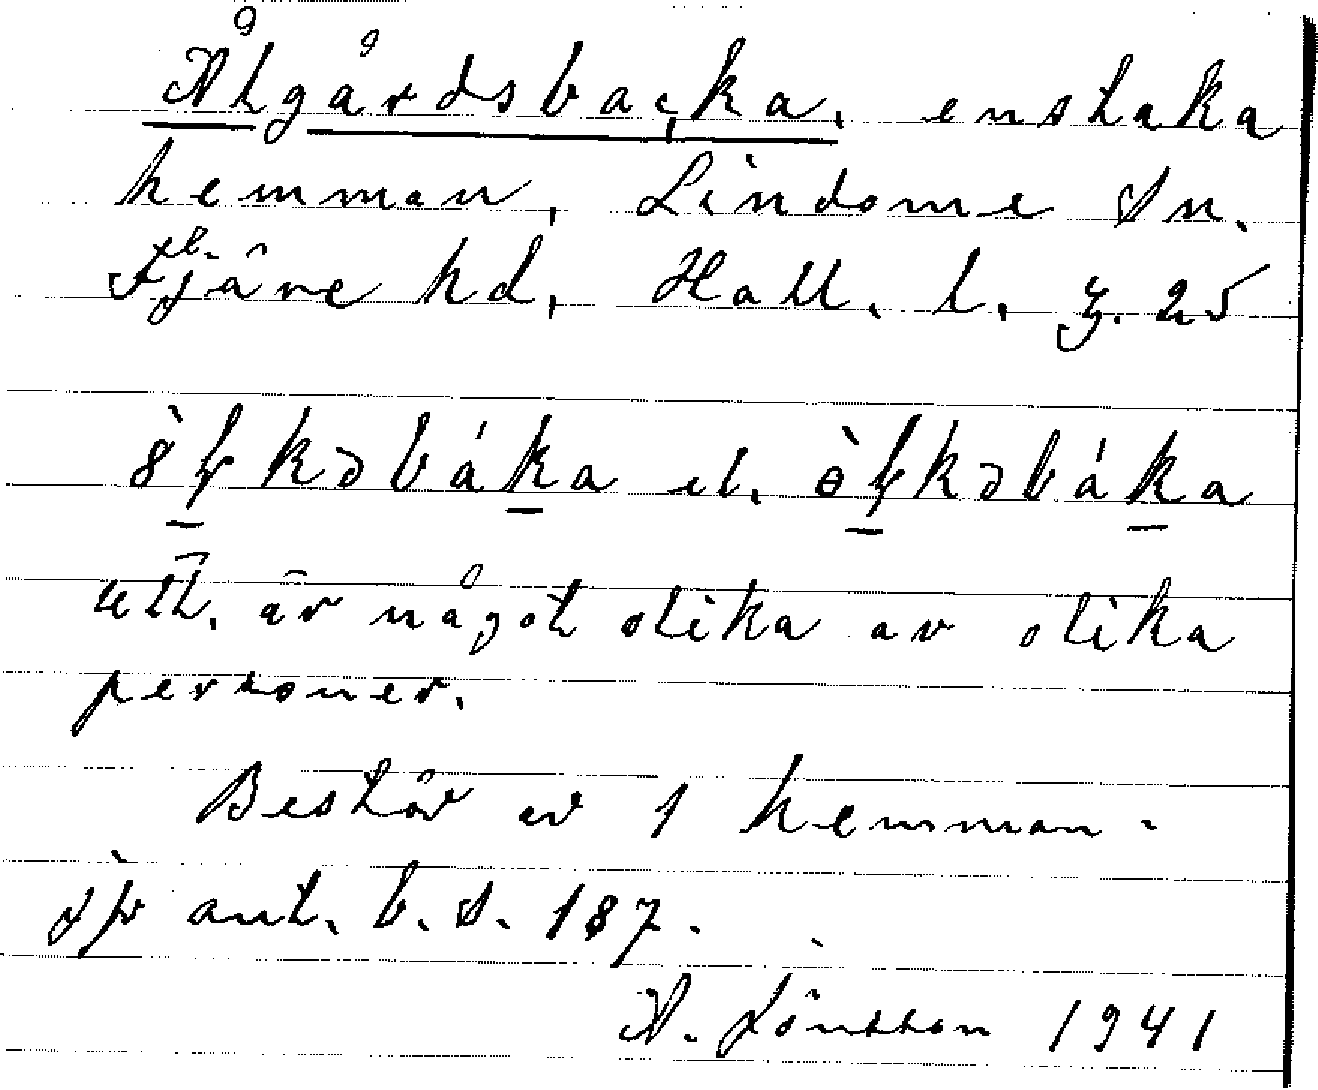 Åtgårdsbacka, enstaka
hemman, Lindome Sn.
Fjäre hd, Hall. l. z. 25
el.
utt. är något olika av olika
personer.
Består av 1 hemman.
jfr ant. b. s. 187.
A. Jönsson 1941